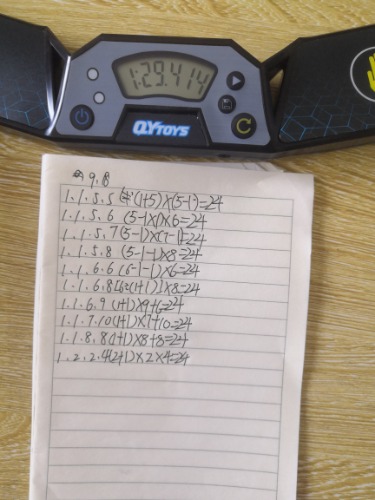 1:29.414
QYTOYS
9.8
1.1.5.5 (1+5)X(5-1)=24
1.1.5.6 (5-1X1)X6=24
1.1.5.7(5-1)X(7-1)=24
1.1.5.8 (5-1-1)X8=24
1.1.6.6 (6-1-1)X6=24
1.1.6.8[6÷(1+1)]X8=24
1.1.6.9 (1+1)X9+6=24
1.1.7.10(1+1)X7+10=24
1.1.8.8(1+1)X8+8=24
1.2.2.4(2+1)X2X4=24